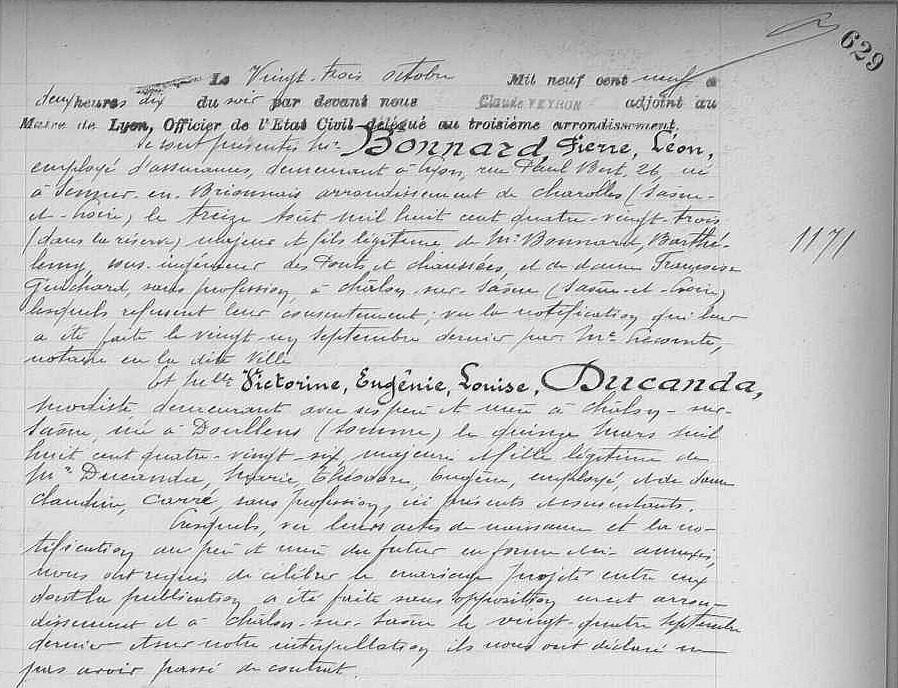 629
Le Vingt-trois octobre Mil neuf cent neuf à
deux heures dix du soir par devant nous Claude VEYRON adjoint au
Maire de Lyon, Officier de l'Etat Civil délégué au troisième arrondissement.
se sont présentés Mr. Bonnard, Pierre, Léon,
employé d'assurances, demeurant à Lyon, rue Paul Bert, 26, né
à Semur-en-Brionnais arrondissement de Charolles (Saône-
et-Loire) le treize août mil huit cent quatre-vingt-trois
(dans la réserve) majeur et fils légitime de Mr. Bonnard, Barthé-
lemy, sous-ingénieur des Ponts et chaussées, et de dame Françoise
Guichard, sans profession, à Châlon-sur-Saône (Saône-et-Loire)
lesquels refusent leur consentement; vu la notification qui leur
a été faite le vingt-un septembre dernier par Me. Lecomte,
notaire en la dite Ville
Et Melle Victorine, Eugénie, Louise, Ducanda,
modiste demeurant avec ses père et mère à Châlon-sur-
Saône, née à Doullens (Somme) le quinze mars mil
huit cent quatre-vingt-six, majeure et fille légitime de
Mr. Ducanda, Marie, Théodore, Eugène, employé, et de dame
Claudine, Carré, sans profession, ici présents et consentants.
Lesquels, vu leurs actes de naissance et la no-
tification aux père et mère du futur en forme et ci-annexés,
nous ont requis de célébrer le mariage projeté entre eux
dont la publication a été faite sans opposition en cet arron-
dissement et à Châlon-sur-Saône le vingt-quatre septembre
dernier et sur notre interpellation ils nous ont déclaré ne
pas avoir passé de contrat.
1171